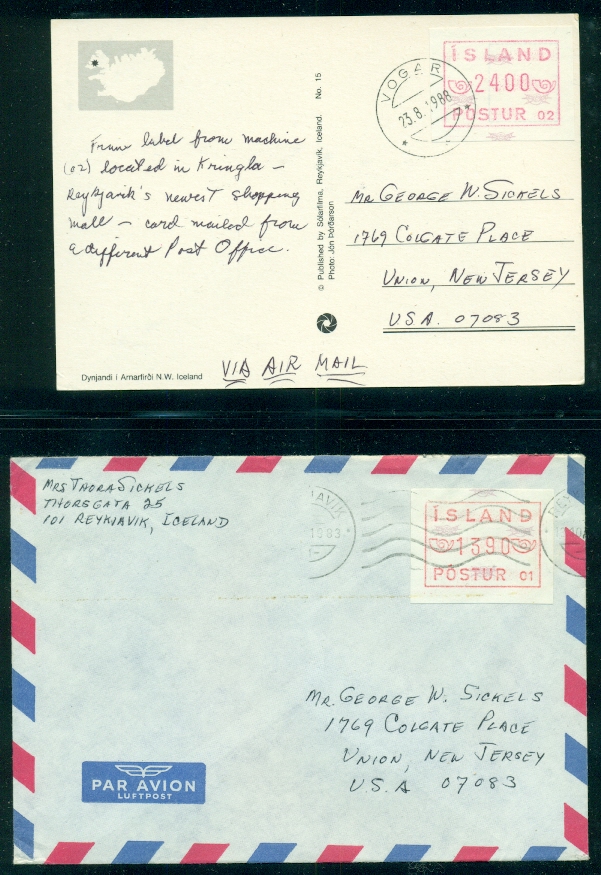 ÍSLAND
2400
PÓSTUR 02
VOGAR
23.8.1988
From label from machine
(02) located in Kringla -
Reykjavik's newest shopping
mall - card mailed from
a different Post Office.
© Published by Sólarfilma, Reykjavik, Iceland. No. 15
Photo: Jón Þórðarson
Mr George W. Sickels
1769 Colgate Place
Union, New Jersey
U.S.A. 07083
Dynjandi í Arnarfirði N.W. Iceland
VIA AIR MAIL
Mrs Thora Sickels
Thorsgata 25
101 Reykjavik, Iceland
AVIK
1983
ÍSLAND
1390
PÓSTUR 01
Mr. George W. Sickels
1769 Colgate Place
Union, New Jersey
U.S.A 07083
PAR AVION
LUFTPOST